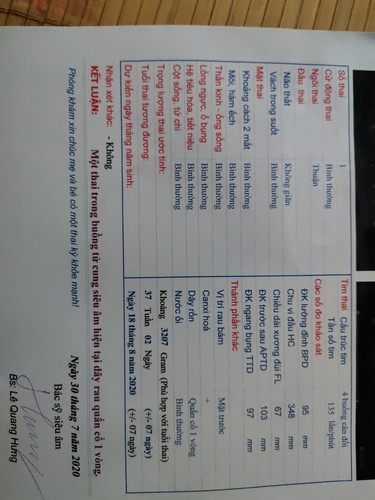 Số thai 1 Tim thai Cấu trúc tim 4 buồng cân đối
Cử động thai Bình thường Tần số tim 135 lần/phút
Ngôi thai Thuận Các số đo khảo sát
Đầu thai ĐK lưỡng đỉnh BPD 95 mm
Não thất Không giãn Chu vi đầu HC 348 mm
Vách trong suốt Bình thường Chiều dài xương đùi FL 67 mm
Mặt thai ĐK trước sau APTD 103 mm
Khoảng cách 2 mắt Bình thường ĐK ngang bụng TTD 97 mm
Môi, hàm ếch Bình thường Thành phần khác
Thần kinh - ống sống Bình thường Vị trí rau bám Mặt trước
Lồng ngực, ổ bụng Bình thường Canxi hoá +
Hệ tiêu hóa, tiết niệu Bình thường Dây rốn Quấn cổ 1 vòng
Cột sống, tứ chi Bình thường Nước ối Bình thường
Trọng lượng thai ước tính: Khoảng 3207 Gram (Phù hợp với tuổi thai)
Tuổi thai tương đương: 37 Tuần 02 Ngày (+/- 07 ngày)
Dự kiến ngày tháng năm sinh: Ngày 18 tháng 8 năm 2020 (+/- 07 ngày)
Nhận xét khác: - Không
KẾT LUẬN: Một thai trong buồng tử cung siêu âm hiện tại dây rau quấn cổ 1 vòng.
Ngày 30 tháng 7 năm 2020
Phòng khám xin chúc mẹ và bé có một thai kỳ khỏe mạnh! Bác sỹ siêu âm
Bs: Lê Quang Hưng